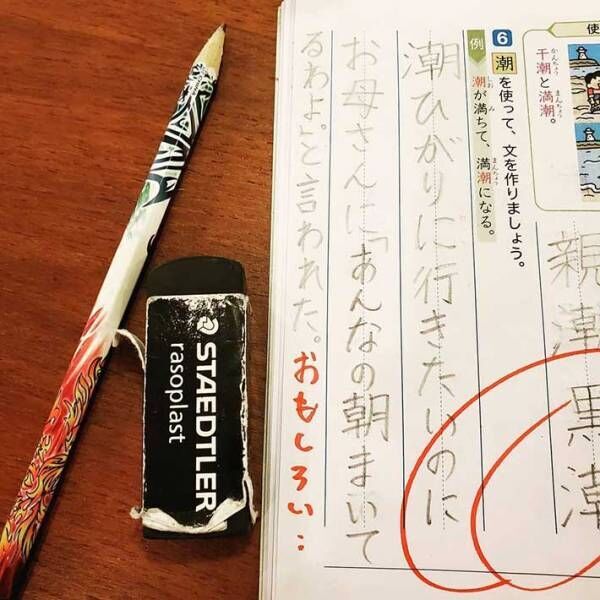 使
干潮と満潮。
かんちょう まんちょう
親潮 黒潮
6 潮を使って、文を作りましょう。
例 潮が満ちて、満潮になる。
しお み まんちょう
潮ひがりに行きたいのに
お母さんに「あんなの朝まいて
るわよ。」と言われた。
おもしろい：
STAEDTLER
rasoplast